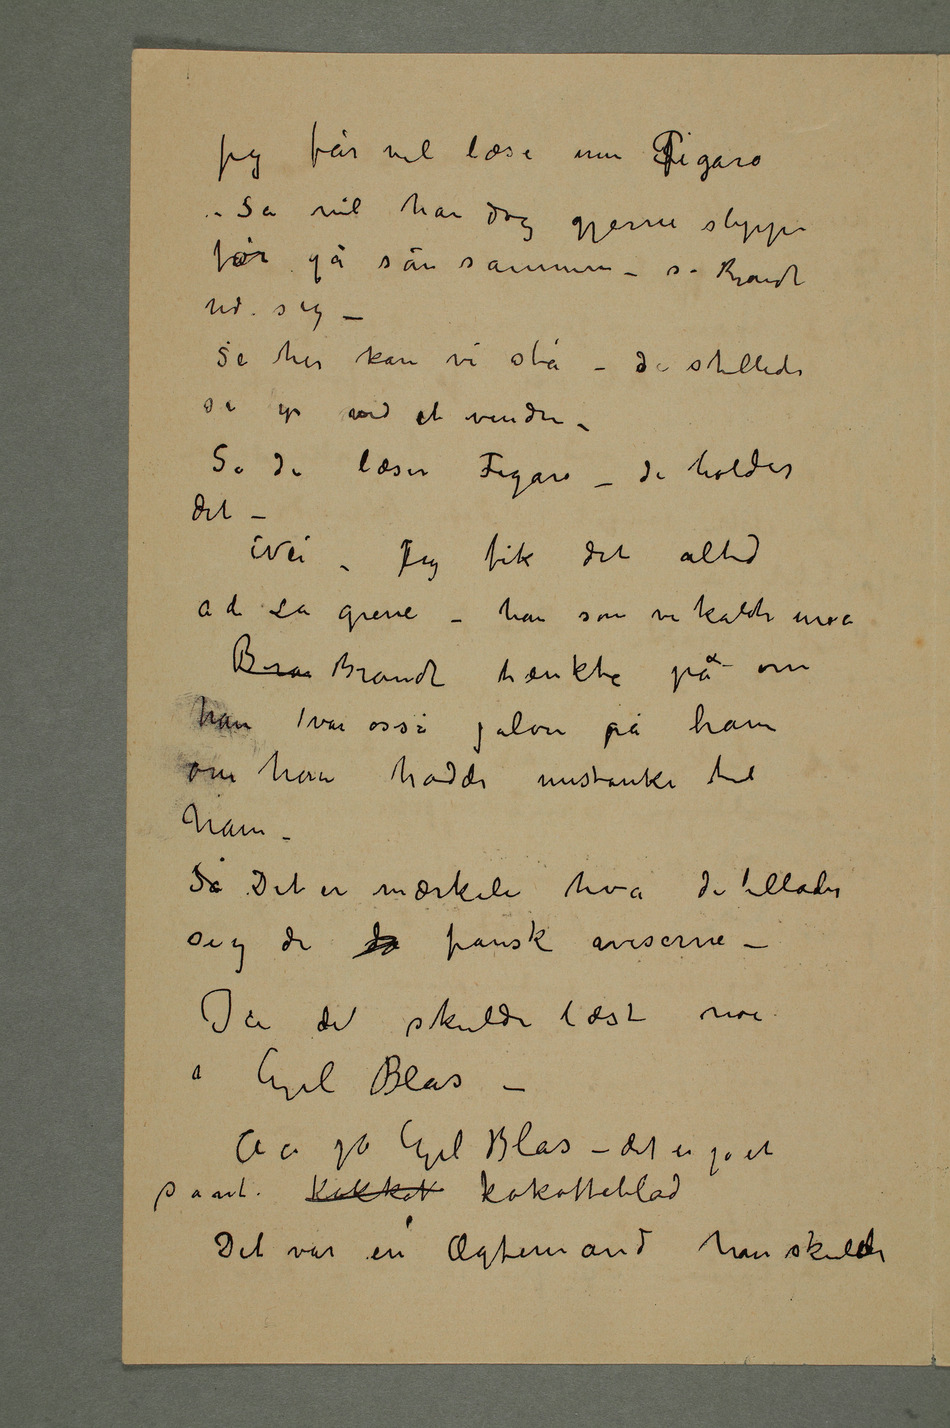 Jeg får vel læse min Figaro
– Så vil han dog gjerne slippe
for gå sån sammen – sa Brandt
ved sig –
Se her kan vi stå – de stillede
sig ved et vindu –
Så De læser Figaro – De holder
det –
Nei – Jeg fik det altid
a de la grene – han som vi kaldte
Brandt tænkte på – om
han var osså jaloux på ham
om han hadde mistanke til
ham –
Så Det er mærkeli hva de tillader
sig de fransk aviserne –
Ja de skulde læst noe
i Gil Blas –
Aa ja Gil Blas – det er jo et
sant. Kokkot kokotteblad
Det var en Ægtemand han skulde